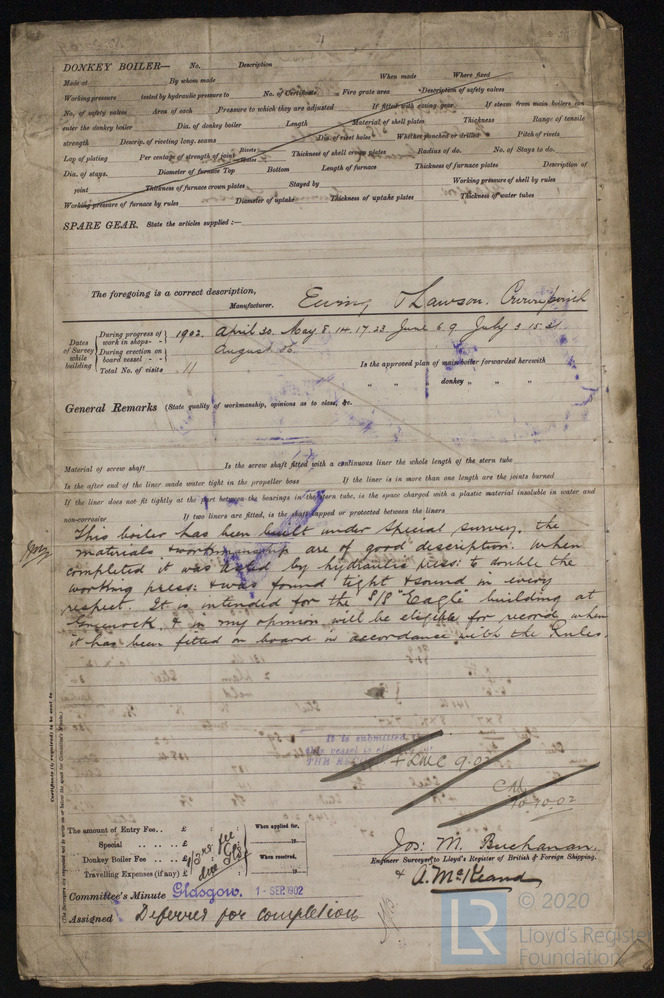 4
DONKEY BOILER— No. Description
Made at By whom made When made Where fixed
Working pressure tested by hydraulic pressure to No. of Certificate Fire grate area Description of safety valves
No. of safety valves Area of each Pressure to which they are adjusted If fitted with easing gear If steam from main boilers can
enter the donkey boiler Dia. of donkey boiler Length Material of shell plates Thickness Range of tensile
strength Descrip. of riveting long. seams Dia. of rivet holes Whether punched or drilled Pitch of rivets
Lap of plating Per centage of strength of joint Rivets Thickness of shell crown plates Radius of do. No. of Stays to do.
Dia. of stays. Diameter of furnace Top Bottom Length of furnace Thickness of furnace plates Description of
joint Thickness of furnace crown plates Stayed by Working pressure of shell by rules
Working pressure of furnace by rules Diameter of uptake Thickness of uptake plates Thickness of water tubes
SPARE GEAR. State the articles supplied:—
The foregoing is a correct description,
Manufacturer. Ewing & Lawson. Crownpoint
Dates of Survey while building
During progress of work in shops - - 1902. April 30. May 8. 14. 17. 23 June 6. 9 July 3. 15. 31
During erection on board vessel - - August 26.
Total No. of visits 11
Is the approved plan of main boiler forwarded herewith
" " donkey " " "
General Remarks (State quality of workmanship, opinions as to class, &c.
Material of screw shaft Is the screw shaft fitted with a continuous liner the whole length of the stern tube
Is the after end of the liner made water tight in the propeller boss If the liner is in more than one length are the joints burned
If the liner does not fit tightly at the part between the bearings in the stern tube, is the space charged with a plastic material insoluble in water and
non-corrosive If two liners are fitted, is the shaft lapped or protected between the liners
This boiler has been built under special survey. the
materials & workmanship are of good description. When
completed it was tested by hydraulic press: to double the
working press: & was found tight & sound in every
respect. It is intended for the S/S "Eagle" building at
Greenock. & in my opinion will be eligible for record when
it has been fitted on board in accordance with the Rules.
It is submitted that
this vessel is eligible for
THE RECORD + LMC 9.02
10.10.02
Certificate (if required) to be sent to
(The Surveyors are requested not to write on or below the space for Committee's Minute.)
The amount of Entry Fee.. £
Special .. .. .. £
Donkey Boiler Fee .. .. £
Travelling Expenses (if any) £
When applied for,
When received,
Jos: M. Buchanan.
Engineer Surveyor to Lloyd's Register of British & Foreign Shipping.
& A. McKeand
Committee's Minute Glasgow. 1 - SEP. 1902
Assigned Deferred for completion
© 2020
LR Lloyd's Register
Foundation